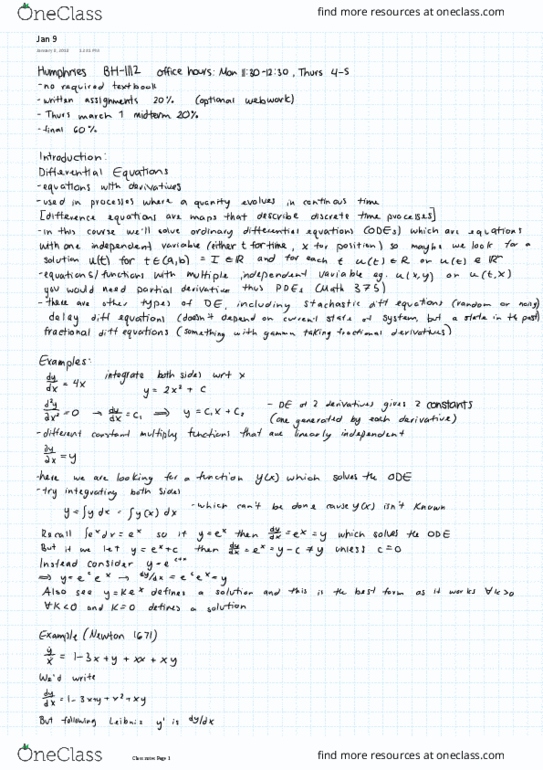 OneClass
find more resources at oneclass.com
Jan 9
Humphries BH-1112 office hours: Mon 11:30-12:30, Thurs 4-5
-no required textbook
-written assignments 20% (optional webwork)
-Thurs march 1 midterm 20%
-final 60%
Introduction:
Differential Equations
-equations with derivatives
-used in processes where a quanity evolves in continous time
[difference equations are maps that describe discrete time processes]
-in this course we'll solve ordinary differential equations (ODEs) which are equations
with one independent variable (either t for time, x for position) so maybe we look for a
solution u(t) for t∈(a,b) = I ∈ ℝ and for each t u(t) ∈ ℝ or u(t) ∈ ℝⁿ
-equations/functions with multiple independent variable eg. u(x,y) or u(t,x)
you would need partial derivative thus PDEs (Math 375)
-there are other types of DE, including stochastic diff equations (random or noisy)
delay diff equations (doesn't depend on current state of system, but a state in the past)
fractional diff equations (something with gamma taking fractional derivatives)
Examples:
dy/dx = 4x integrate both sides wrt x
y = 2x² + C
d²y/dx² = 0 → dy/dx = C₁ ⟹ y = C₁x + C₂ - DE of 2 derivatives gives 2 constants
(one generated by each derivative)
-different constant multiply functions that are linearly independent
dy/dx = y
-here we are looking for a function y(x) which solves the ODE
-try integrating both sides
y = ∫y dx = ∫y(x) dx -which can't be done cause y(x) isn't known
Recall ∫eˣdx = eˣ so if y=eˣ then dy/dx = eˣ = y which solves the ODE
But if we let y = eˣ+c then dy/dx = eˣ = y-c ≠ y unless c=0
Instead consider y=eᶜ⁺ˣ
⟹ y = eᶜeˣ → dy/dx = eᶜeˣ = y
Also see y=keˣ defines a solution and this is the best form as it works ∀k>0
∀k<0 and k=0 defines a solution
Example (Newton 1671)
ẏ/ẋ = 1-3x+y+xx+xy
We'd write
dy/dx = 1-3x+y+x²+xy
But following Leibniz y' is dy/dx
OneClass
Class notes Page 1
find more resources at oneclass.com